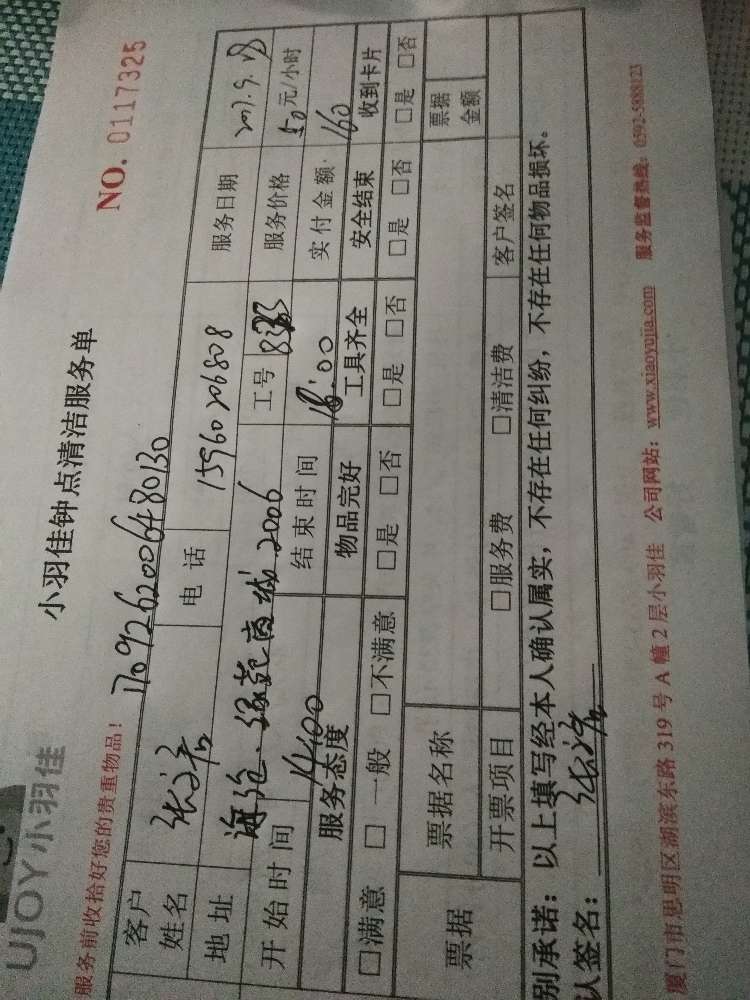 UJOY小羽佳
小羽佳钟点清洁服务单
NO. 0117325
服务前收拾好您的贵重物品!
1709262006480130
客户姓名 电话 15960206808 服务日期
地址 海沧.绿苑商城.2006 工号 服务价格 50元/小时
开始时间 14:00 结束时间 18:00 实付金额: 160
服务态度 物品完好 工具齐全 安全结束 收到卡片
□满意 □一般 □不满意 □是 □否 □是 □否 □是 □否 □是 □否
票据 票据名称 票据金额
开票项目 □服务费 □清洁费 客户签名
别承诺:以上填写经本人确认属实,不存在任何纠纷,不存在任何物品损坏。
人签名:
厦门市思明区湖滨东路 319 号 A 幢 2 层小羽佳 公司网站:www.xiaoyujia.com 服务监督热线:0592-5888123